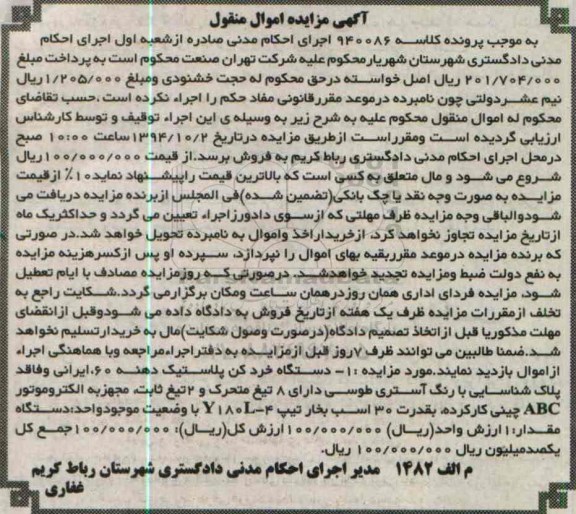 آگهی مزایده اموال منقول
به موجب پرونده کلاسه ۹۴۰۰۸۶ اجرای احکام مدنی صادره ازشعبه اول اجرای احکام
مدنی دادگستری شهرستان شهریارمحکوم علیه شرکت تهران صنعت محکوم است به پرداخت مبلغ
۲۰۱/۷۰۴/۰۰۰ ریال اصل خواسته درحق محکوم له حجت خشنودی ومبلغ ۱/۲۰۵/۰۰۰ریال
نیم عشردولتی چون نامبرده درموعد مقررقانونی مفاد حکم را اجراء نکرده است ،حسب تقاضای
محکوم له اموال منقول محکوم علیه به شرح زیر به وسیله ی این اجراء توقیف و توسط کارشناس
ارزیابی گردیده است ومقرراست ازطریق مزایده درتاریخ ۱۳۹۴/۱۰/۲ساعت ۱۰:۰۰ صبح
درمحل اجرای احکام مدنی دادگستری رباط کریم به فروش برسد.از قیمت ۱۰۰/۰۰۰/۰۰۰ریال
شروع می شود و مال متعلق به کسی است که بالاترین قیمت راپیشنهاد نماید۱۰٪ ازقیمت
مزایده به صورت وجه نقد یا چک بانکی(تضمین شده)فی المجلس ازبرنده مزایده دریافت می
شودوالباقی وجه مزایده ظرف مهلتی که ازسوی دادورزاجراء تعیین می گردد و حداکثریک ماه
ازتاریخ مزایده تجاوز نخواهد کرد، ازخریداراخذ واموال به نامبرده تحویل خواهد شد.در صورتی
که برنده مزایده درموعد مقرربقیه بهای اموال را نپردازد، سپرده او پس ازکسرهزینه مزایده
به نفع دولت ضبط ومزایده تجدید خواهدشد. درصورتی که روزمزایده مصادف با ایام تعطیل
شود، مزایده فردای اداری همان روزدرهمان ساعت ومکان برگزارمی گردد.شکایت راجع به
تخلف ازمقررات مزایده ظرف یک هفته ازتاریخ فروش به دادگاه داده می شودوقبل ازانقضای
مهلت مذکوریا قبل ازاتخاذ تصمیم دادگاه(درصورت وصول شکایت)مال به خریدارتسلیم نخواهد
شد.ضمنا طالبین می توانند ظرف ۷روز قبل ازمزایده به دفتراجراءمراجعه وبا هماهنگی اجراء
ازاموال بازدید نمایند.مورد مزایده :۱- دستگاه خرد کن پلاستیک دهنه ۶۰،ایرانی وفاقد
پلاک شناسایی با رنگ آستری طوسی دارای ۸ تیغ متحرک و ۲تیغ ثابت، مجهزبه الکتروموتور
ABC چینی کارکرده، بقدرت ۳۰ اسب بخار تیپ Y۱۸۰L-۴ با وضعیت موجودواحد:دستگاه
مقدار:۱ارزش واحد(ریال) ۱۰۰/۰۰۰/۰۰۰ ارزش کل(ریال): ۱۰۰/۰۰۰/۰۰۰جمع کل
یکصدمیلیون ریال ۱۰۰/۰۰۰/۰۰۰ ریال.
م الف ۱۴۸۲ مدیر اجرای احکام مدنی دادگستری شهرستان رباط کریم
غفاری